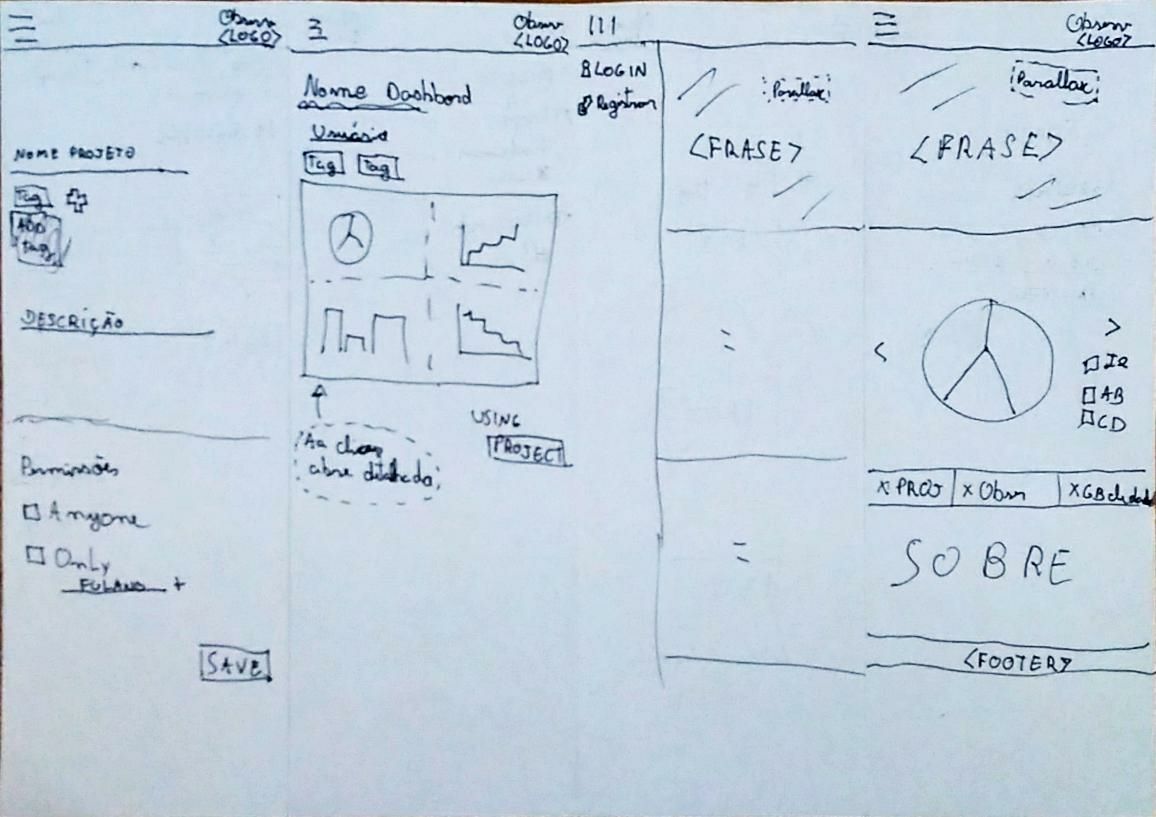 Observ
<LOGO>
NOME PROJETO
Tag
ADD
tag
DESCRIÇÃO
Permissões
Anyone
Only
FULANO +
SAVE
Observ
<LOGO>
Nome Dashbord
Usuário
Tag Tag
Ao clicar
abre detalhado
USING
PROJECT
LOGIN
Registrar
Parallax
<FRASE>
Observ
<LOGO>
Parallax
<FRASE>
< >
AB
CD
X PROJ X Obser
SOBRE
<FOOTER>